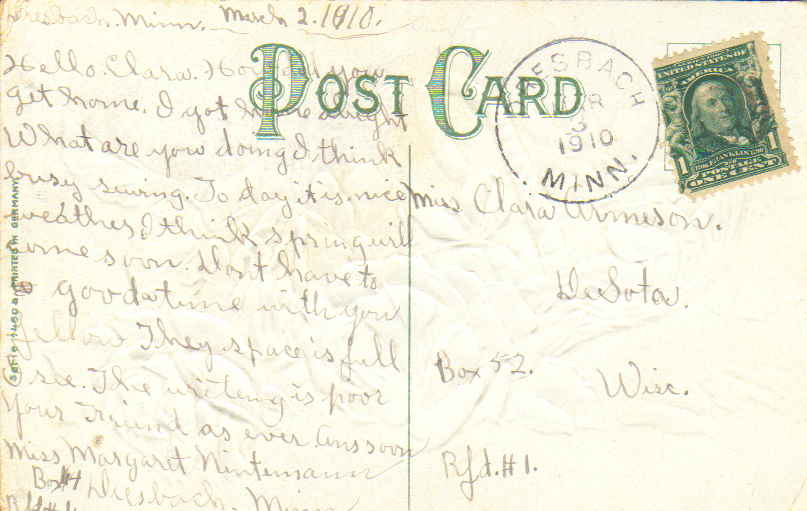 Dresbach. Minn. March 2. 1910.
Hello. Clara. How did you
get home. I got home alright
What are you doing I think
busy sewing. To day it is nice
weather I think spring will
come soon. Dont have to
good a time with you
fellow They space is full
I see. The writeng is poor
Your Friend as ever Ans soon
Miss Margaret Nintemann
Box #4 Dresbach. Minn
Rfd #1.
POST CARD
DRESBACH
APR
3
1910
MINN.
UNITED STATES OF
AMERICA
1 1
POSTAGE
ONE CENT
Miss Clara Armeson.
DeSota.
Box 52. Wisc.
Rfd. #1.
PRINTED IN GERMANY